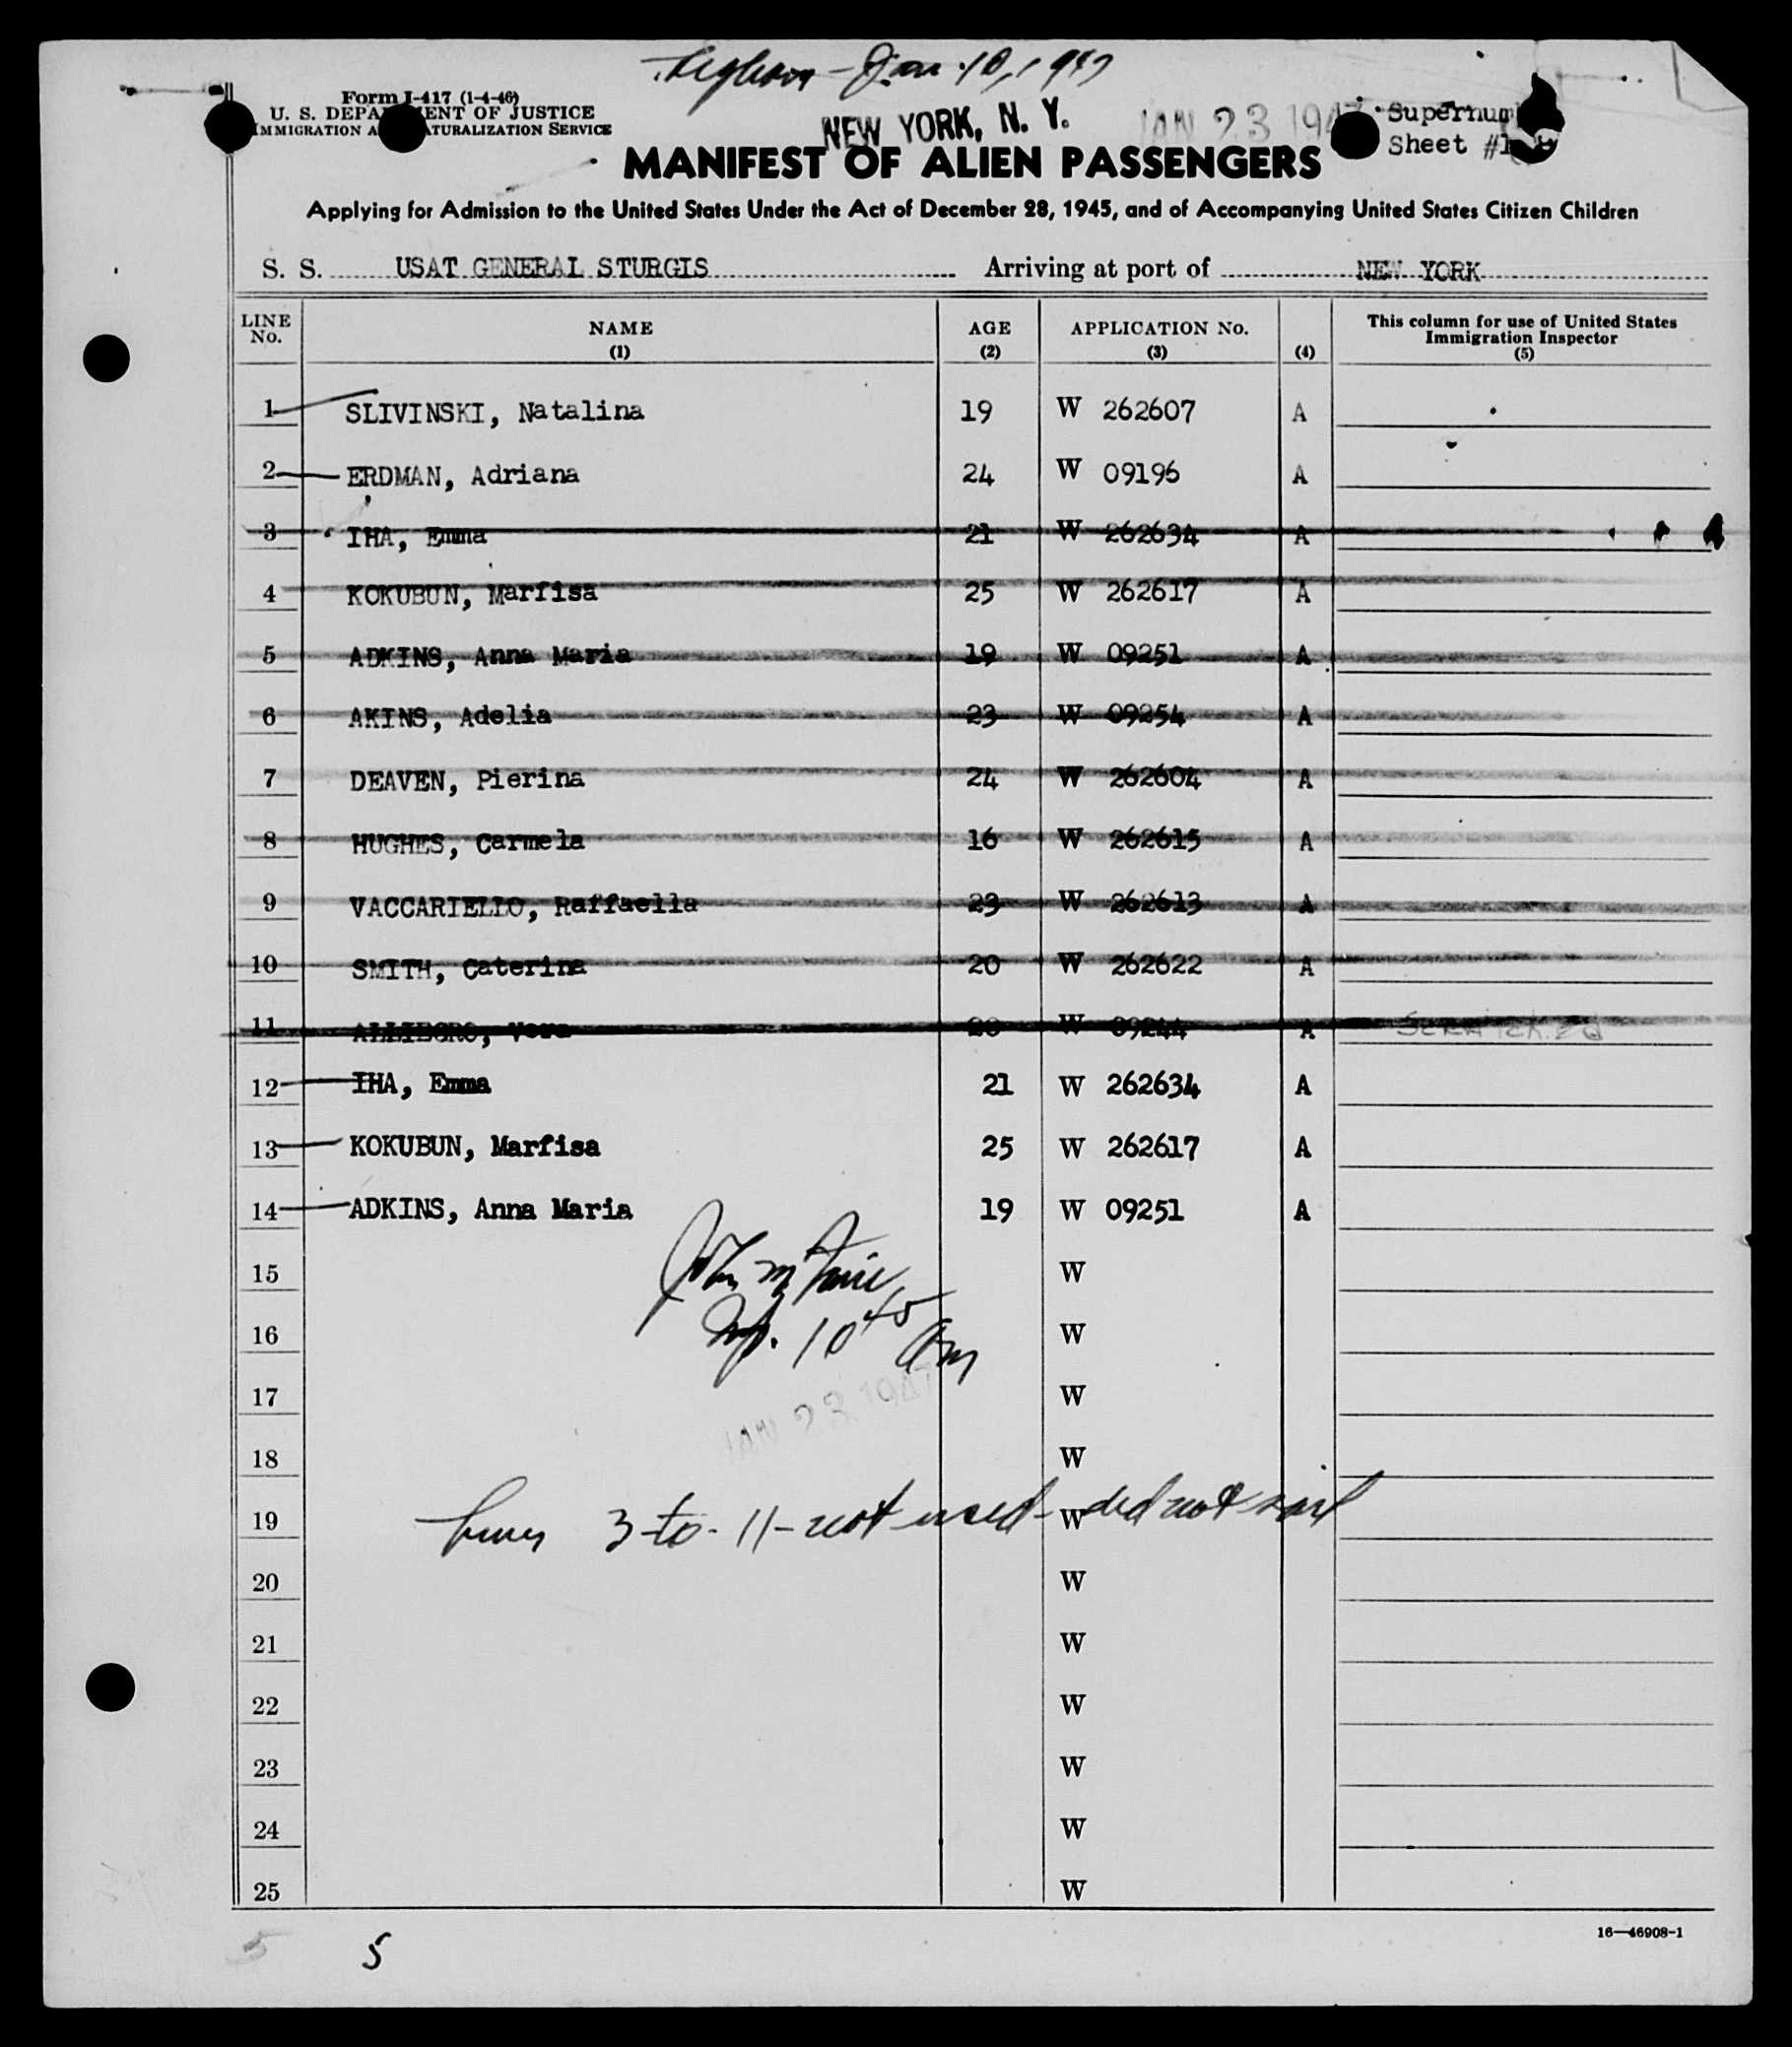 Leghorn - Jan. 10, 1947
Form I-417 (1-4-46)
U. S. DEPARTMENT OF JUSTICE
IMMIGRATION AND NATURALIZATION SERVICE
NEW YORK, N. Y. JAN 23 1947
Supernum
Sheet #1
MANIFEST OF ALIEN PASSENGERS
Applying for Admission to the United States Under the Act of December 28, 1945, and of Accompanying United States Citizen Children
S. S. USAT GENERAL STURGIS Arriving at port of NEW YORK
LINE No. NAME (1) AGE (2) APPLICATION No. (3) (4) This column for use of United States Immigration Inspector (5)
1 SLIVINSKI, Natalina 19 W 262607 A
2 ERDMAN, Adriana 24 W 09196 A
3 IHA, Emma 21 W 262634 A
4 KOKUBUN, Marfisa 25 W 262617 A
5 ADKINS, Anna Maria 19 W 09251 A
6 AKINS, Adelia 23 W 09254 A
7 DEAVEN, Pierina 24 W 262604 A
8 HUGHES, Carmela 16 W 262615 A
9 VACCARIELLO, Raffaella 23 W 262613 A
10 SMITH, Caterina 20 W 262622 A
11 ALLEGRO, Vera 20 W 09244 A
12 IHA, Emma 21 W 262634 A
13 KOKUBUN, Marfisa 25 W 262617 A
14 ADKINS, Anna Maria 19 W 09251 A
15 W
Insp. 10 45 am
16 W
17 W
JAN 23 1947
18 W
19 W
Lines 3-to-11-not used-did not sail
20 W
21 W
22 W
23 W
24 W
25 W
16—46908-1
5 5